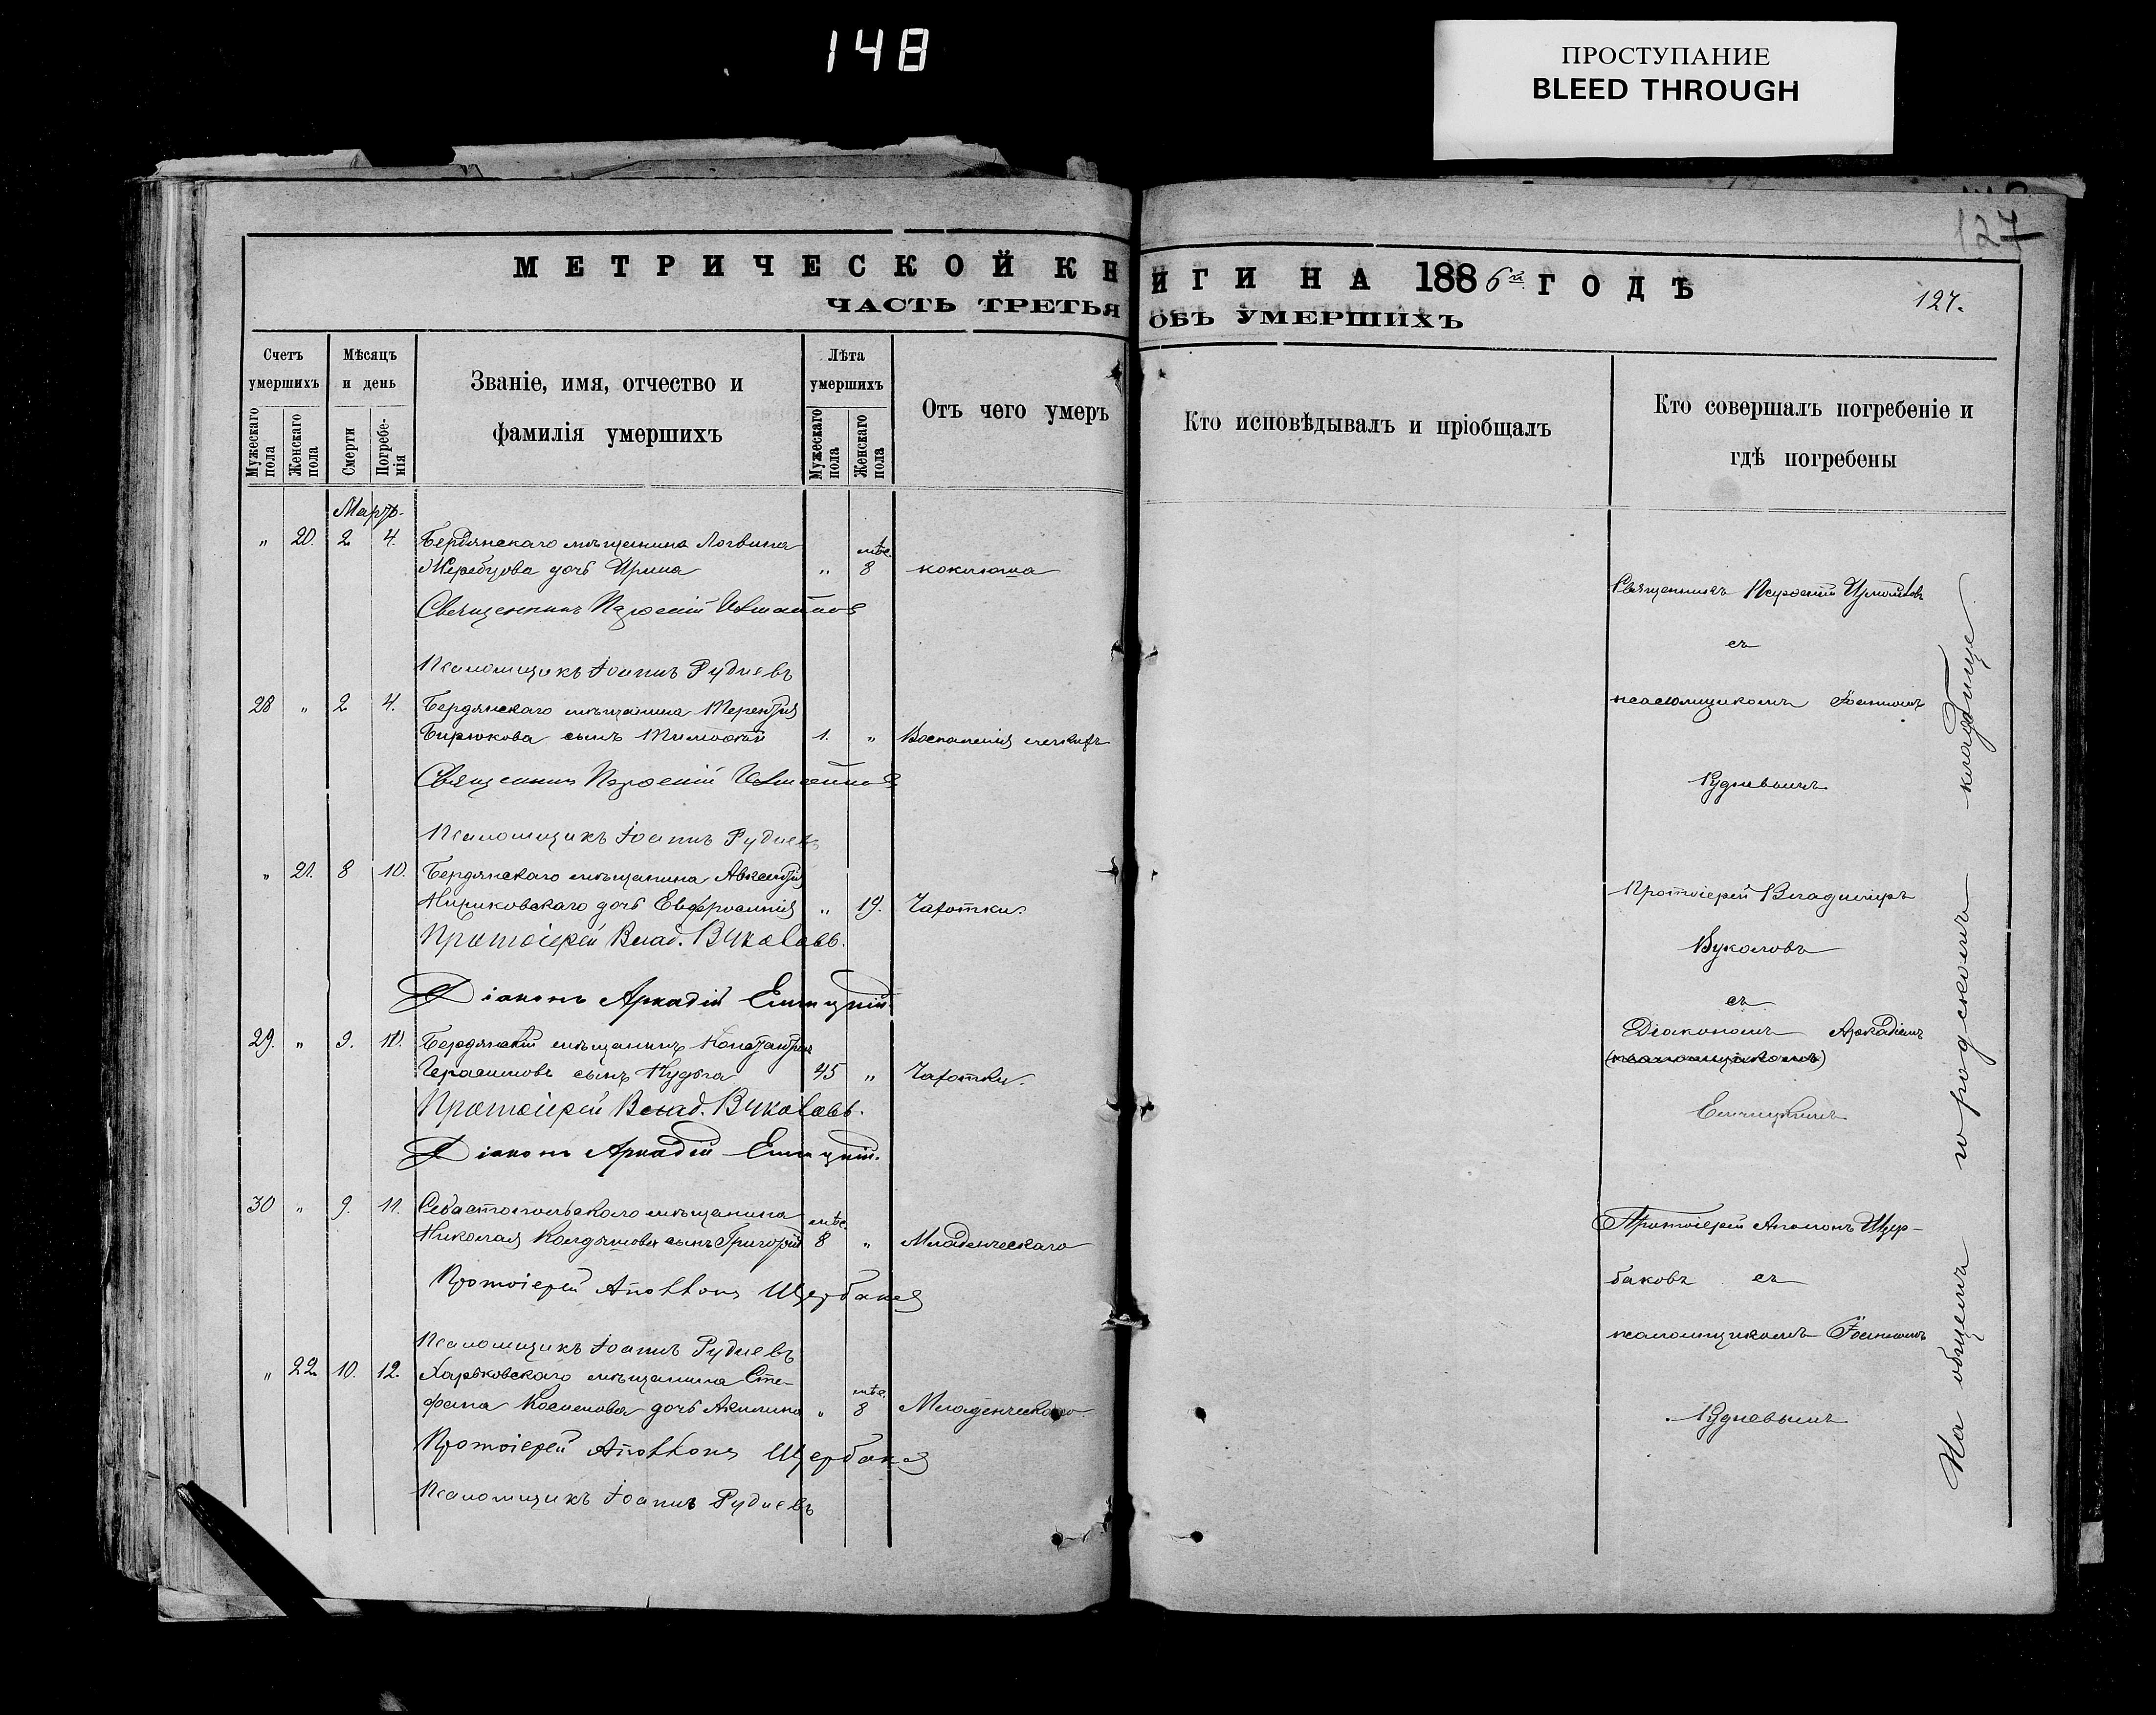 148
ПРОСТУПАНИЕ
BLEED THROUGH
127
МЕТРИЧЕСКОЙ КНИГИ НА 1886й ГОДЪ
127.
ЧАСТЬ ТРЕТЬЯ ОБЪ УМЕРШИХЪ
Счетъ умершихъ
Мужескаго пола
Женскаго пола
Мѣсяцъ и день
Смерти
Погребенія
Званіе, имя, отчество и
фамилія умершихъ
Лѣта умершихъ
Мужескаго пола
Женскаго пола
Отъ чего умеръ
Кто исповѣдывалъ и пріобщалъ
Кто совершалъ погребеніе и
гдѣ погребены
Мартъ.
" 20. 2 4. Бердянскаго мѣщанина Логвина
Жеребцова дочь Ирина " мѣс. 8 коклюша
Священникъ
Псаломщикъ Іоаннъ Рудневъ
28 " 2 4. Бердянскаго мѣщанина Терентія
Бирюкова сынъ Тимофей 1. " Воспаленія легкихъ
Священникъ
Псаломщикъ Іоаннъ Рудневъ
" 21. 8 10. Бердянскаго мѣщанина Авксентія
дочь Евфросинія " 19. Чахотки.
Протоіерей Влад. Вуколовъ.
Діаконъ Аркадій
29. " 9. 11. Бердянскій мѣщанинъ Константинъ
Герасимовъ сынъ 45 " Чахотки.
Протоіерей Влад. Вуколовъ.
Діаконъ Аркадій
30 " 9. 11. Севастопольскаго мѣщанина
Николая сынъ Григорій мѣс. 8 " Младенческаго
Протоіерей Аполлонъ Щербаковъ
Псаломщикъ Іоаннъ Рудневъ
" 22 10. 12. Харьковскаго мѣщанина Сте-
фана дочь Акилина " мѣс. 8 Младенческаго
Протоіерей Аполлонъ Щербаковъ
Псаломщикъ Іоаннъ Рудневъ
Священникъ
съ
псаломщикомъ Іоанномъ
Рудневымъ
Протоіерей Владиміръ
Вуколовъ
съ
Діакономъ Аркадіемъ
(псаломщикомъ)
Протоіерей Аполонъ Щер-
баковъ съ
псаломщикомъ Іоанномъ
Рудневымъ
На общемъ городскомъ кладбище